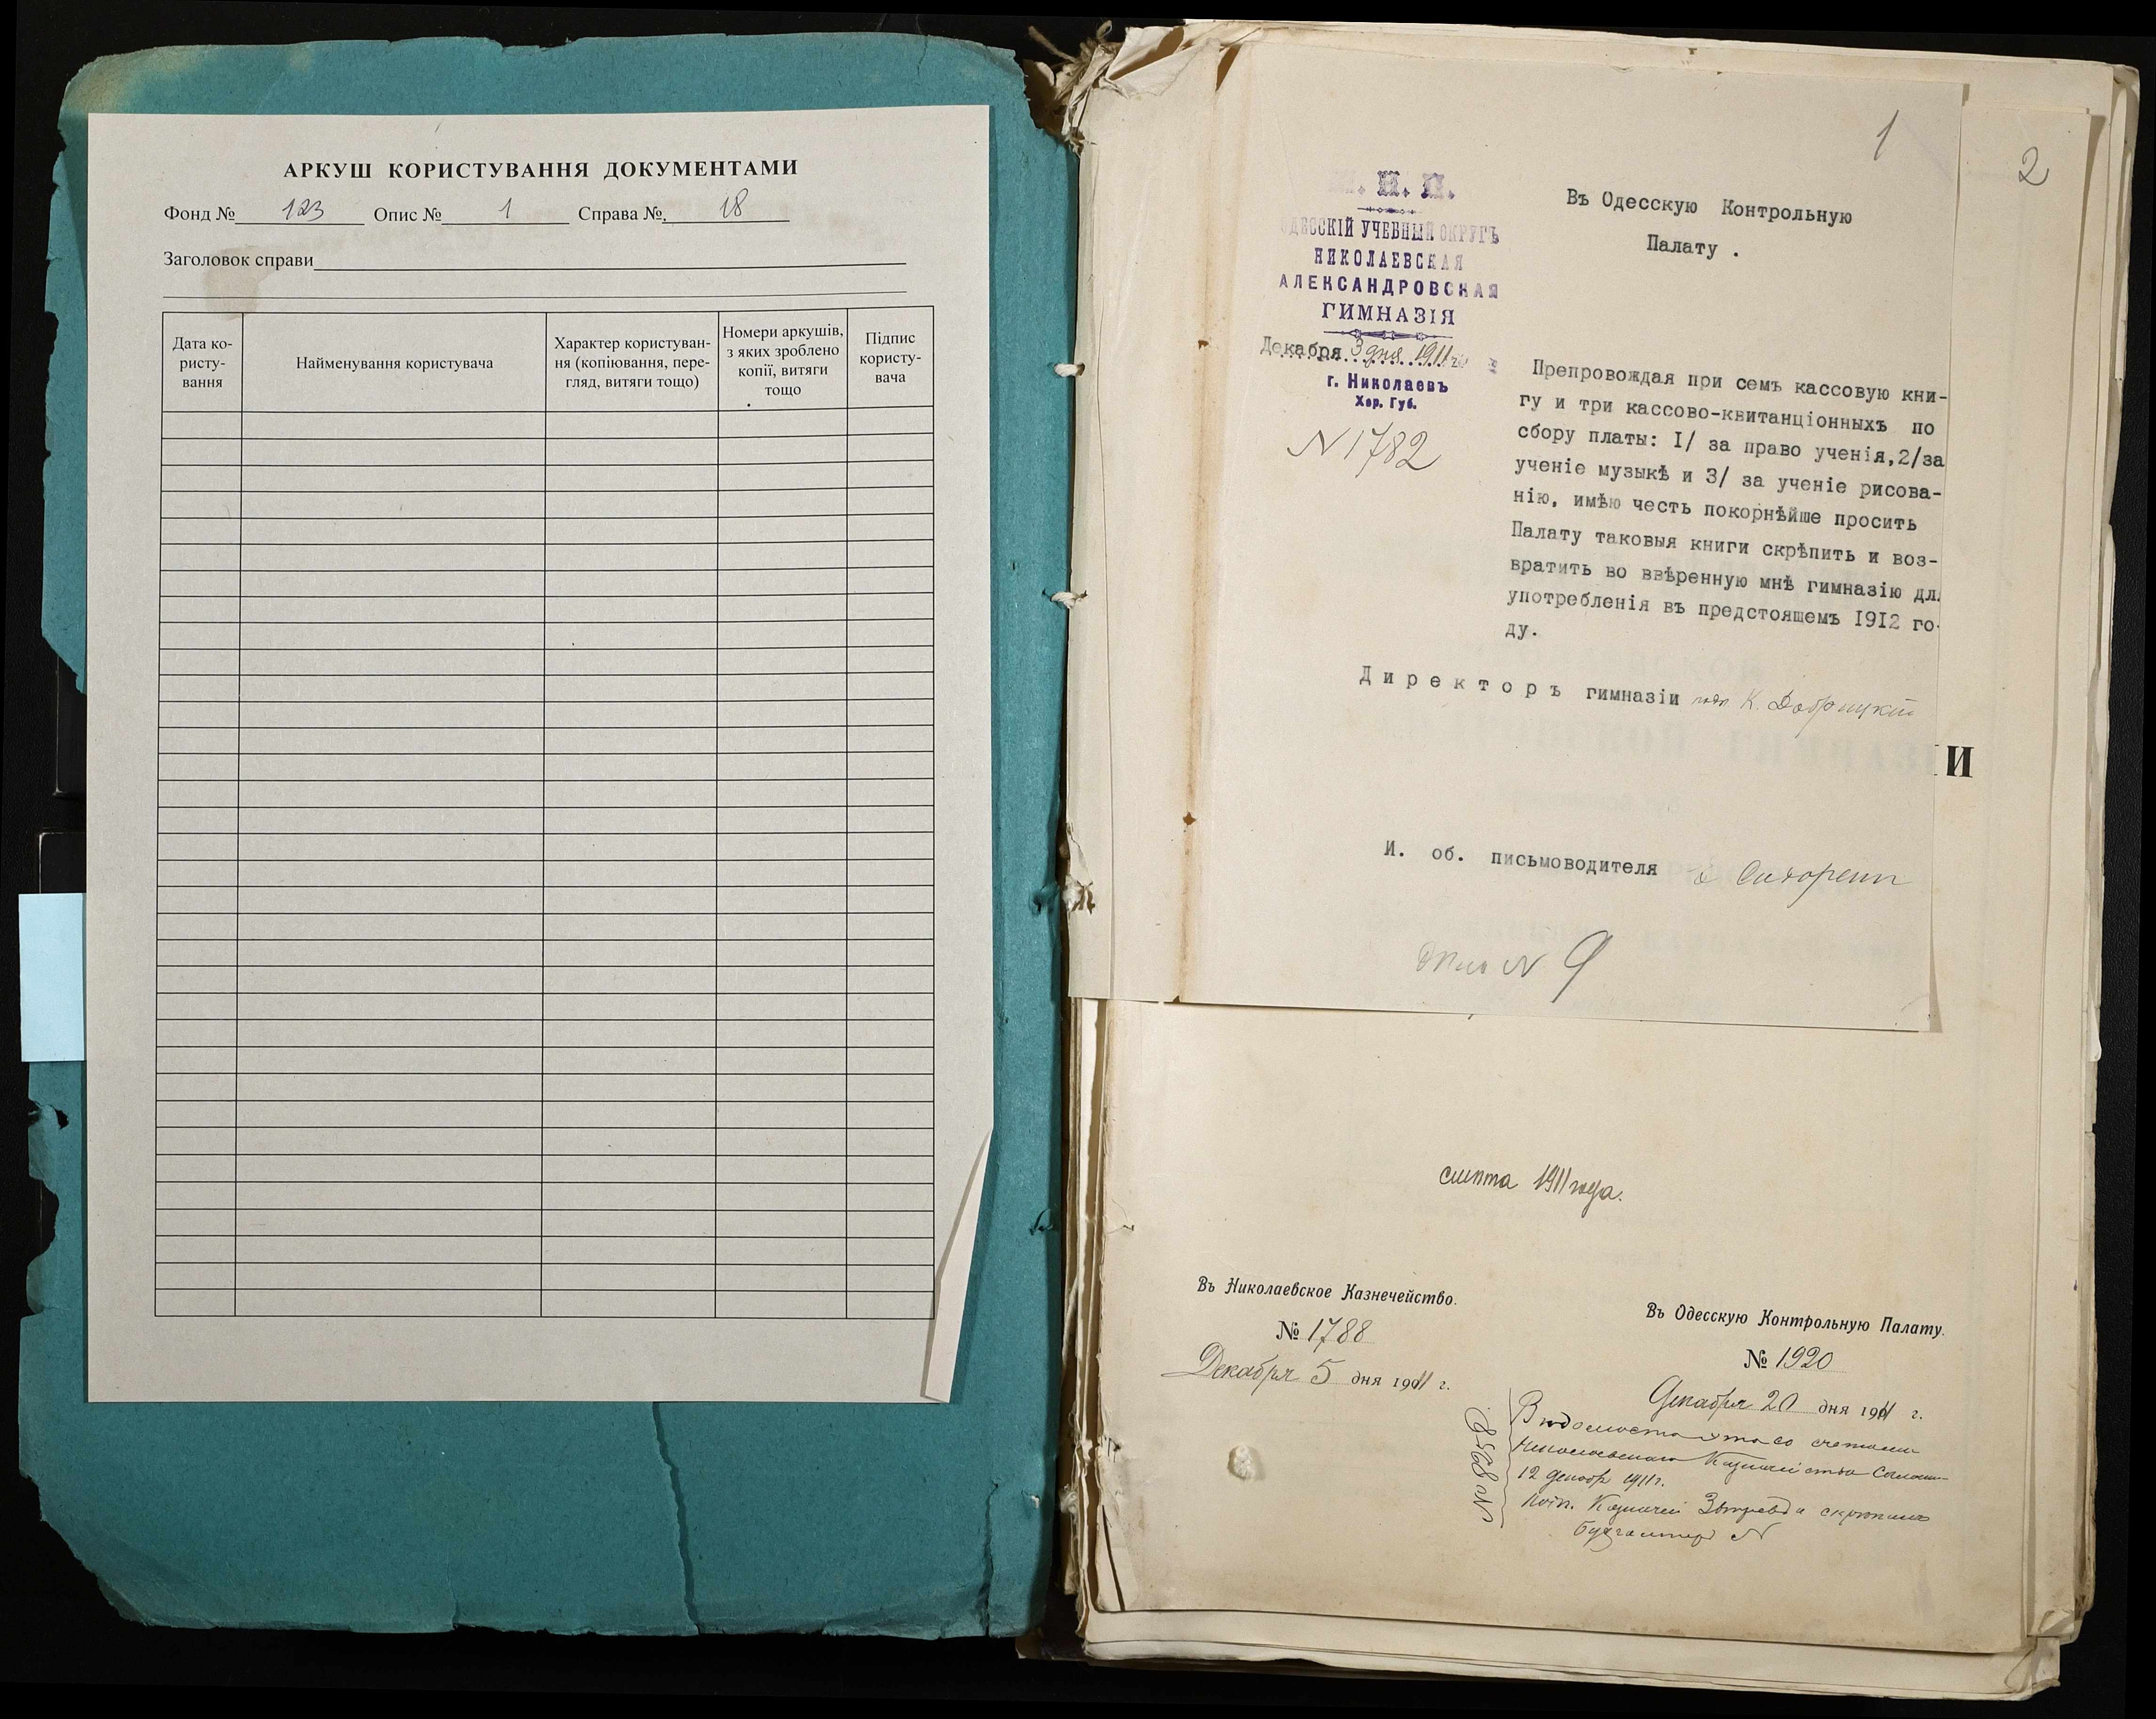 АРКУШ КОРИСТУВАННЯ ДОКУМЕНТАМИ
Фонд № 123 Опис № 1 Справа №. 18
Заголовок справи
Дата ко-
ристу-
вання
Найменування користувача
Характер користуван-
ня (копіювання, пере-
гляд, витяги тощо)
Номери аркушів,
з яких зроблено
копії, витяги
тощо
Підпис
користу-
вача
1
2
. Н. П.
ОДЕССКІЙ УЧЕБНЫЙ ОКРУГЪ
НИКОЛАЕВСКАЯ
АЛЕКСАНДРОВСКАЯ
ГИМНАЗІЯ
Декабря 3 дня 1911 г.
г. Николаевъ
Хер. Губ.
N 1782
Въ Одесскую Контрольную
Палату .
Препровождая при семъ кассовую кни-
гу и три кассово-квитанціонныхъ по
сбору платы: I/ за право ученія,2/за
ученіе музыкѣ и 3/ за ученіе рисова-
нію, имѣю честь покорнѣйше просить
Палату таковыя книги скрѣпить и воз-
вратить во ввѣренную мнѣ гимназію для
употребленія въ предстоящемъ I9I2 го-
ду.
Директоръ гимназіи подп. К. Добрицкій
И
И. об. письмоводителя
N 9
смѣта 1911 года.
Въ Николаевское Казначейство.
№ 1788
Декабря 5 дня 1911 г.
Въ Одесскую Контрольную Палату.
№ 1920
Декабря 20 дня 1911 г.
№ 8568
со счетами
Казначейства
12 декабр 1911 г.
Казначей
Бухгалтеръ N